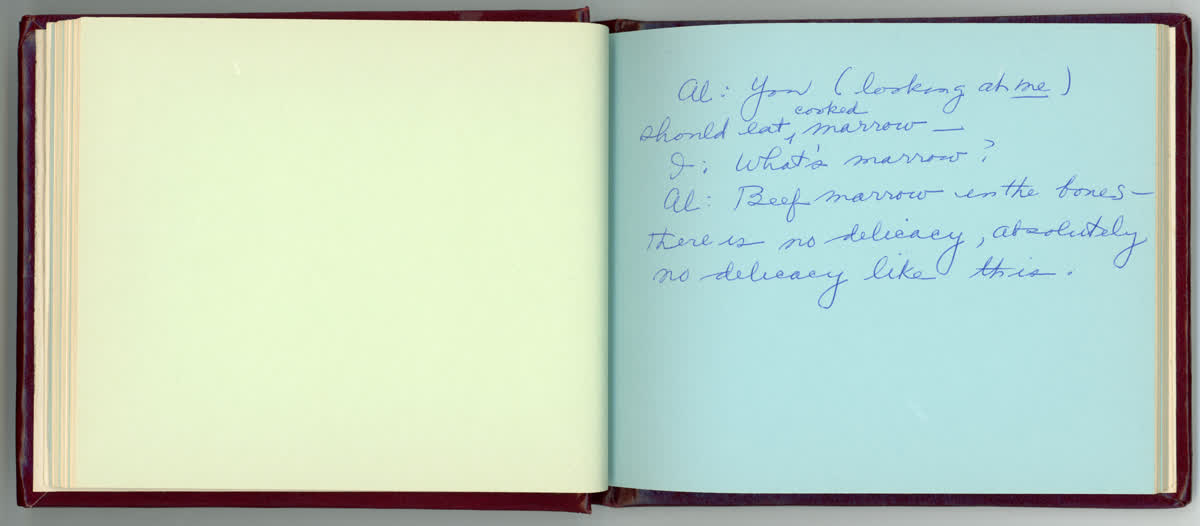 Al: You (looking at me)
cooked
should eat, marrow —
I: What's marrow?
Al: Beef marrow in the bones —
there is no delicacy, absolutely
no delicacy like this.